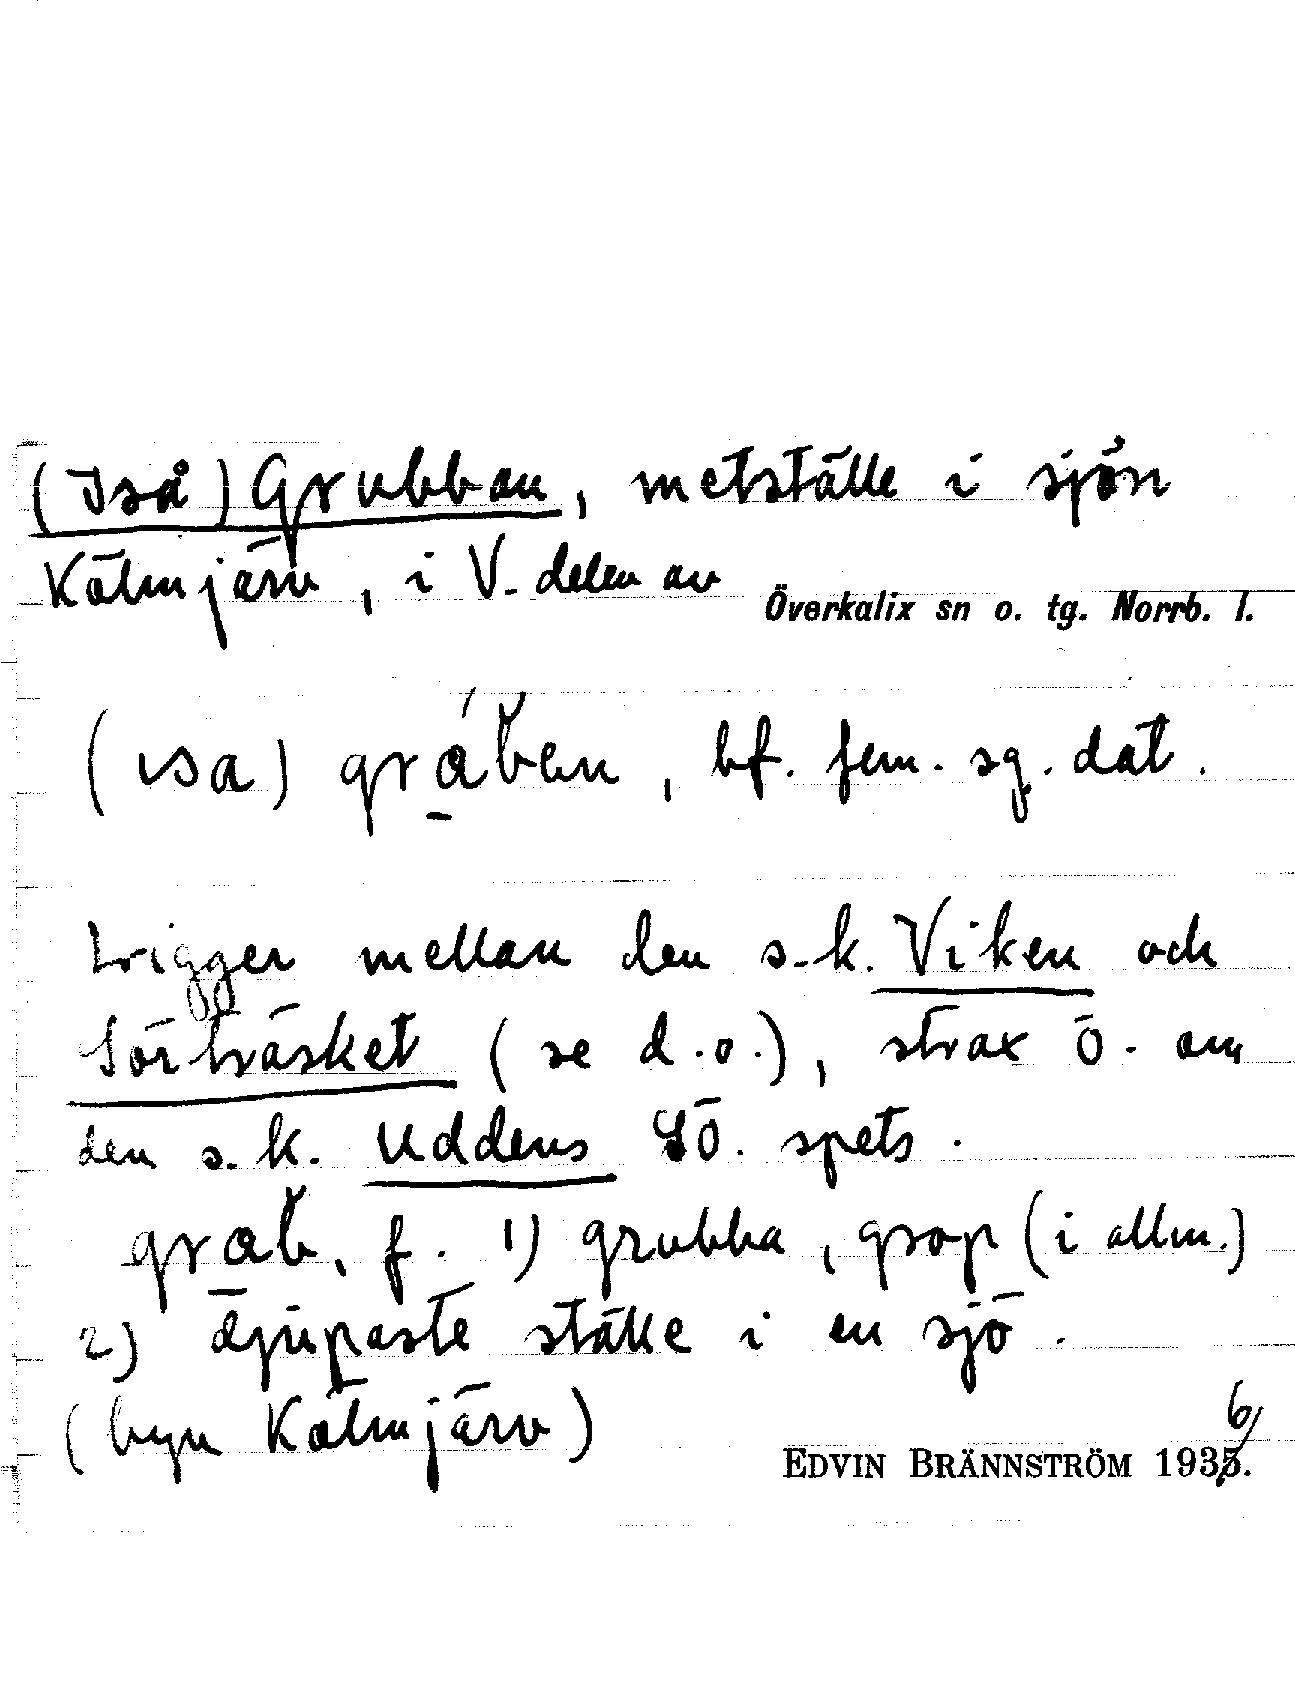 (Iså) Grubban, metställe i sjön
Kölmjärv, i V. delen av
Överkalix sn o. tg. Norrb. l.
(ısa) , bf. fem. sg. dat.
Ligger mellan den s.k. Viken och
Sörträsket (se d.o.), strax Ö. om
den s.k. Uddens SÖ. spets.
f. 1) grubba, grop (i allm.)
2) djupaste ställe i en sjö.
(byn Kölmjärv)
6
EDVIN BRÄNNSTRÖM 1935.